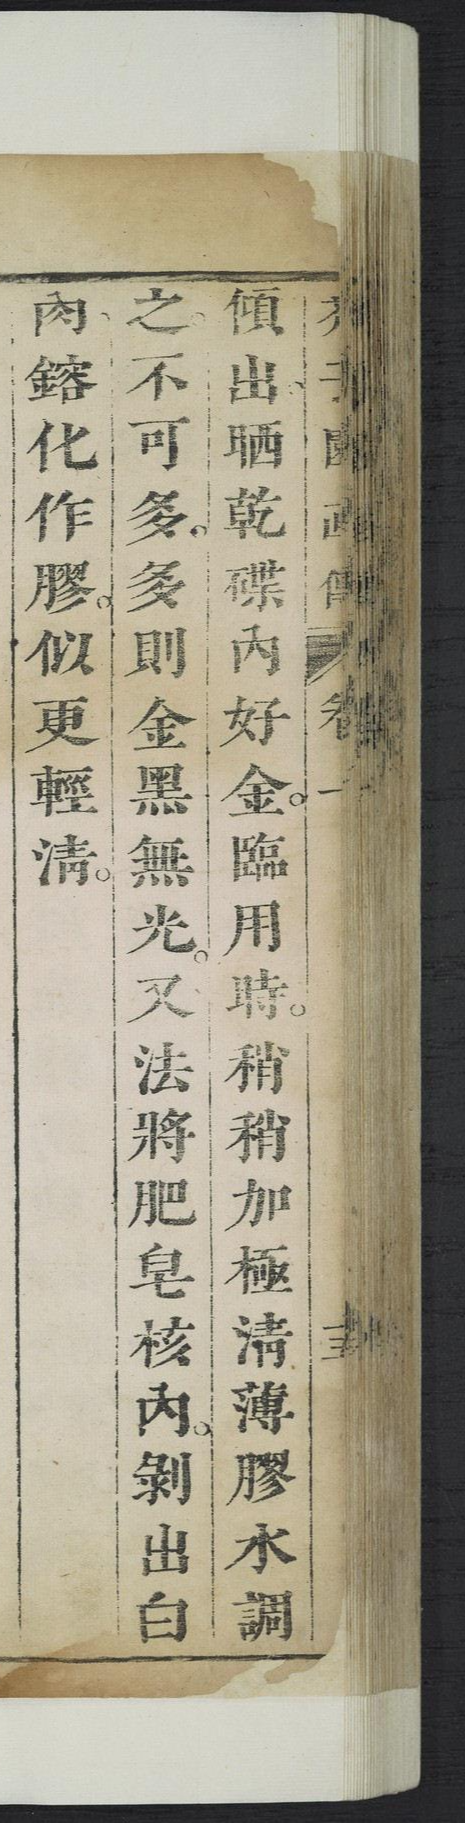 傾出晒乾碟內好金。臨用時。稍稍加極清薄膠水調
之。不可多。多則金黑無光。又法將肥皂核內。剝出白
肉、鎔化作膠。似更輕清。